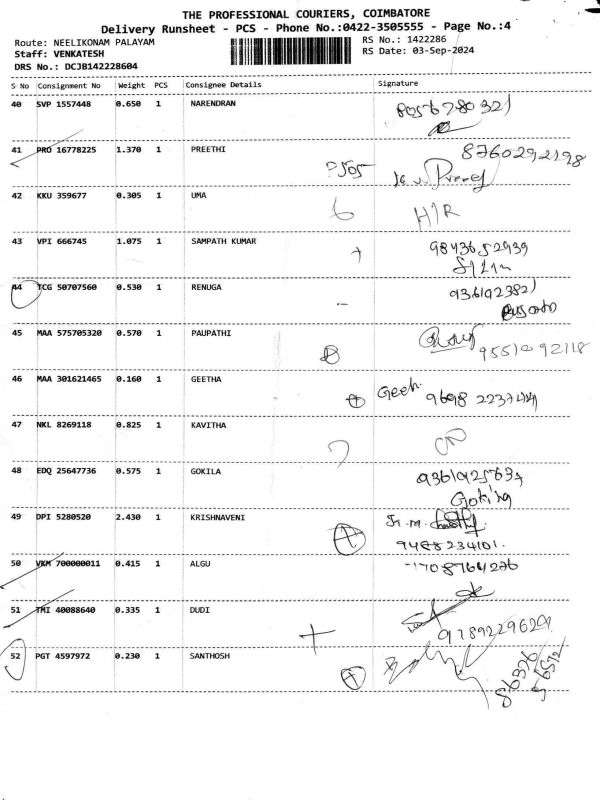 THE PROFESSIONAL COURIERS, COIMBATORE
Delivery Runsheet - PCS - Phone No.:0422-3505555 - Page No.:4
Route: NEELIKONAM PALAYAM
RS No.: 1422286
Staff: VENKATESH
RS Date: 03-Sep-2024
DRS No.: DCJB142228604
S No Consignment No Weight PCS Consignee Details Signature
40 SVP 1557448 0.650 1 NARENDRAN
41 PRO 16778225 1.370 1 PREETHI 8760292198
42 KKU 359677 0.305 1 UMA H/R
43 VPI 666745 1.075 1 SAMPATH KUMAR + 9843652939
44 TCG 50707560 0.530 1 RENUGA - 936192382)
45 MAA 575705320 0.570 1 PAUPATHI
9551092118
46 MAA 301621465 0.160 1 GEETHA Geeh. 9698 2237444
47 NKL 8269118 0.825 1 KAVITHA
48 EDQ 25647736 0.575 1 GOKILA
Goking
49 DPI 5280520 2.430 1 KRISHNAVENI
9488234101.
50 VKM 700000011 0.415 1 ALGU
51 TMI 40088640 0.335 1 DUDI +
9789229629
52 PGT 4597972 0.230 1 SANTHOSH